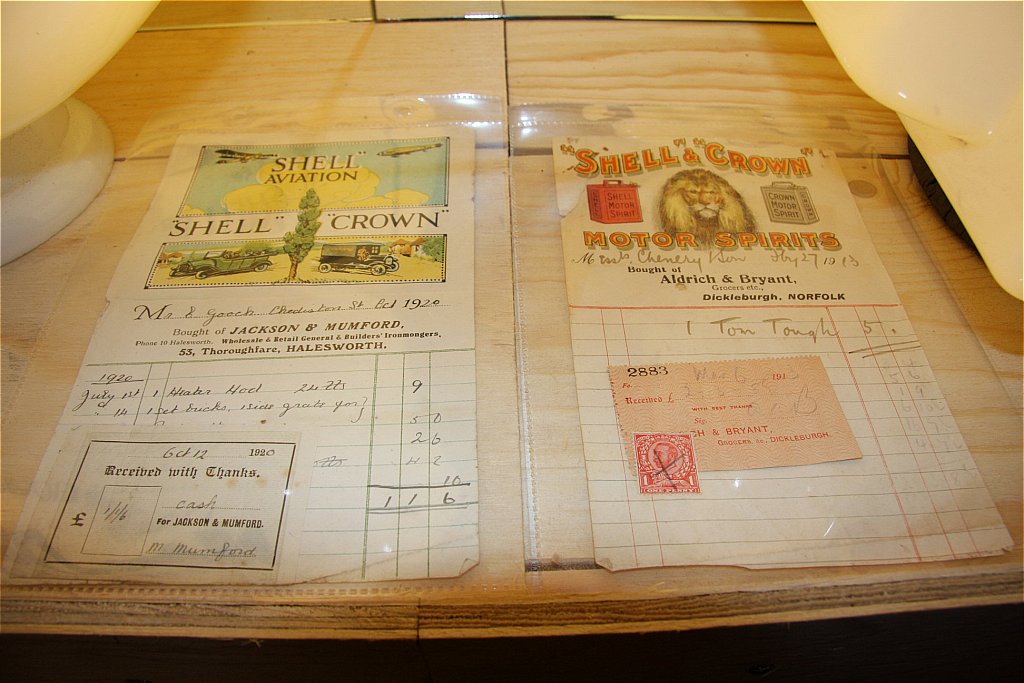 "SHELL"
AVIATION
"SHELL" "CROWN"
Mr E Gooch Chediston St Oct 1920
Bought of JACKSON & MUMFORD,
Phone 10 Halesworth. Wholesale & Retail General & Builders' Ironmongers,
53, Thoroughfare, HALESWORTH.
1920
July 1st 1 Heater Hod 9
" 14 1 set bucks, 1 side grate for}
5 0
2 6
4 2
10
1 1 6
Oct 12 1920
Received with Thanks.
£ 1/1/6 cash
For JACKSON & MUMFORD.
M Mumford
"SHELL" & "CROWN"
SHELL MOTOR SPIRIT
CROWN MOTOR SPIRIT
MOTOR SPIRITS
Messrs. Chenery & Son 27 1913
Bought of
Aldrich & Bryant,
Grocers etc.,
Dickleburgh, NORFOLK
1 Tom Tough 5/.
2883 191
Received £
WITH BEST THANKS
Sig.
CH & BRYANT,
GROCERS, &c., DICKLEBURGH.
1 ONE PENNY 1